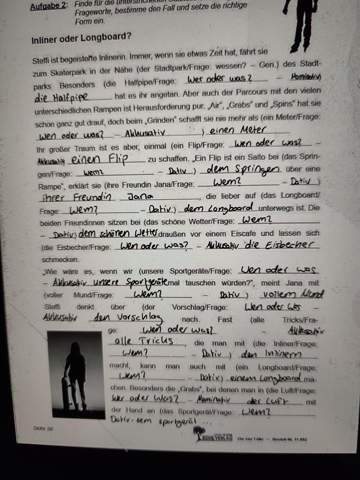 Aufgabe 2: Finde für die unterstrichenen
Fragewörter, bestimme den Fall und setze die richtige
Form ein.
Inliner oder Longboard?
Steffi ist begeisterte Inlinerin. Immer, wenn sie etwas Zeit hat, fährt sie
zum Skaterpark in der Nähe (der Stadtpark/Frage: wessen? – Gen.) des Stadt-
parks Besonders (die Halfpipe/Frage: wer oder was? – Nominativ)
die Halfpipe hat es ihr angetan. Aber auch der Parcours mit den vielen
unterschiedlichen Rampen ist Herausforderung pur. „Air“, „Grabs“ und „Spins“ hat sie
schon ganz gut drauf, doch beim „Grinden“ schafft sie nie mehr als (ein Meter/Frage:
wen oder was? – Akkusativ) einen Meter.
Ihr großer Traum ist es aber, einmal (ein Flip/Frage: wen oder was? –
Akkusativ einen Flip zu schaffen. „Ein Flip ist ein Salto bei (das Sprin-
gen/Frage: wem? – Dativ) dem Springen über eine
Rampe“, erklärt sie (ihre Freundin Jana/Frage: wem? – Dativ)
ihrer Freundin Jana, die lieber auf (das Longboard/
Frage: wem? – Dativ) dem Longboard unterwegs ist. Die
beiden Freundinnen sitzen bei (das schöne Wetter/Frage: wem?
– Dativ) dem schönen Wetter draußen vor einem Eiscafe und lassen sich
(die Eisbecher/Frage: wen oder was? – Akkusativ die Eisbecher
schmecken.
„Wie wäre es, wenn wir (unsere Sportgeräte/Frage: wen oder was
– Akkusativ unsere Sportgeräte mal tauschen würden?“, meint Jana mit
(voller Mund/Frage: wem? – Dativ) vollem Mund
Steffi denkt über (der Vorschlag/Frage: wen oder was
Akkusativ den Vorschlag nach. Fast (alle Tricks/Fra-
ge: wen oder was? Akkusativ
alle Tricks, die man mit (die Inliner/Frage:
wem? – Dativ) den Inlinern
macht, kann man auch mit (ein Longboard/Frage:
wem? – Dativ) einem Longboard ma-
chen. Besonders die „Grabs“, bei denen man in (die Luft/Frage:
wer oder was? – Nominativ der Luft mit
der Hand an (das Sportgerät/Frage: wem?
Dativ dem sportgerät ...